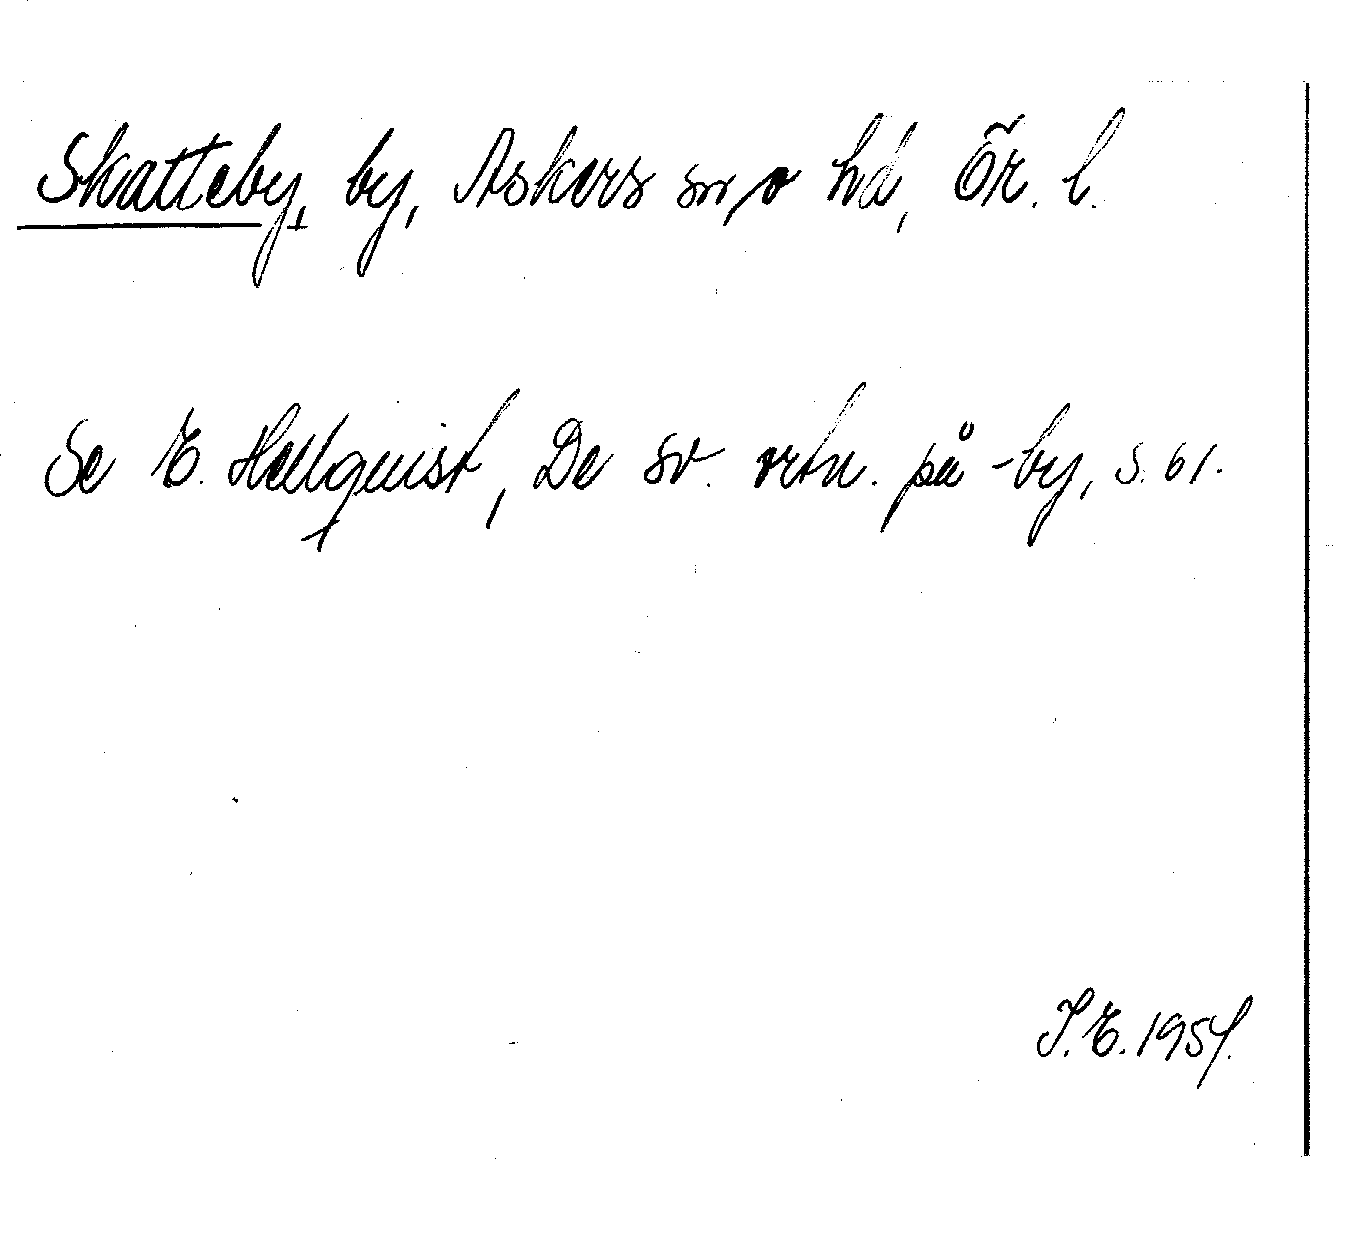 Skatteby, by, Askers sn, o hd, Ör. l.
Se E. Hellquist, De sv. ortn. på -by, s. 61.
I.E. 1954.